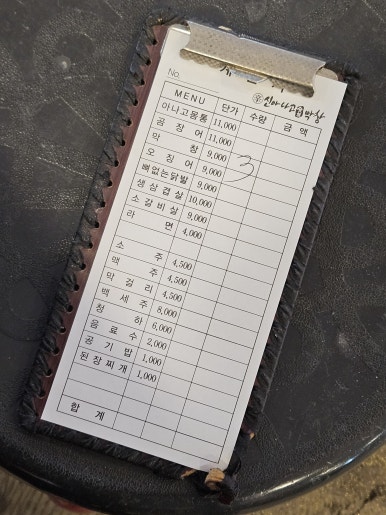 No.
MENU 단가 수량 금액
아나고몽통 11,000
곰장어 11,000
막창 9,000 3
오징어 9,000
뼈없는닭발 9,000
생삼겹살 10,000
소갈비살 9,000
라면 4,000
소주 4,500
맥주 4,500
막걸리 4,500
백세주 8,000
청하 6,000
음료수 2,000
공기밥 1,000
된장찌개 1,000
합계